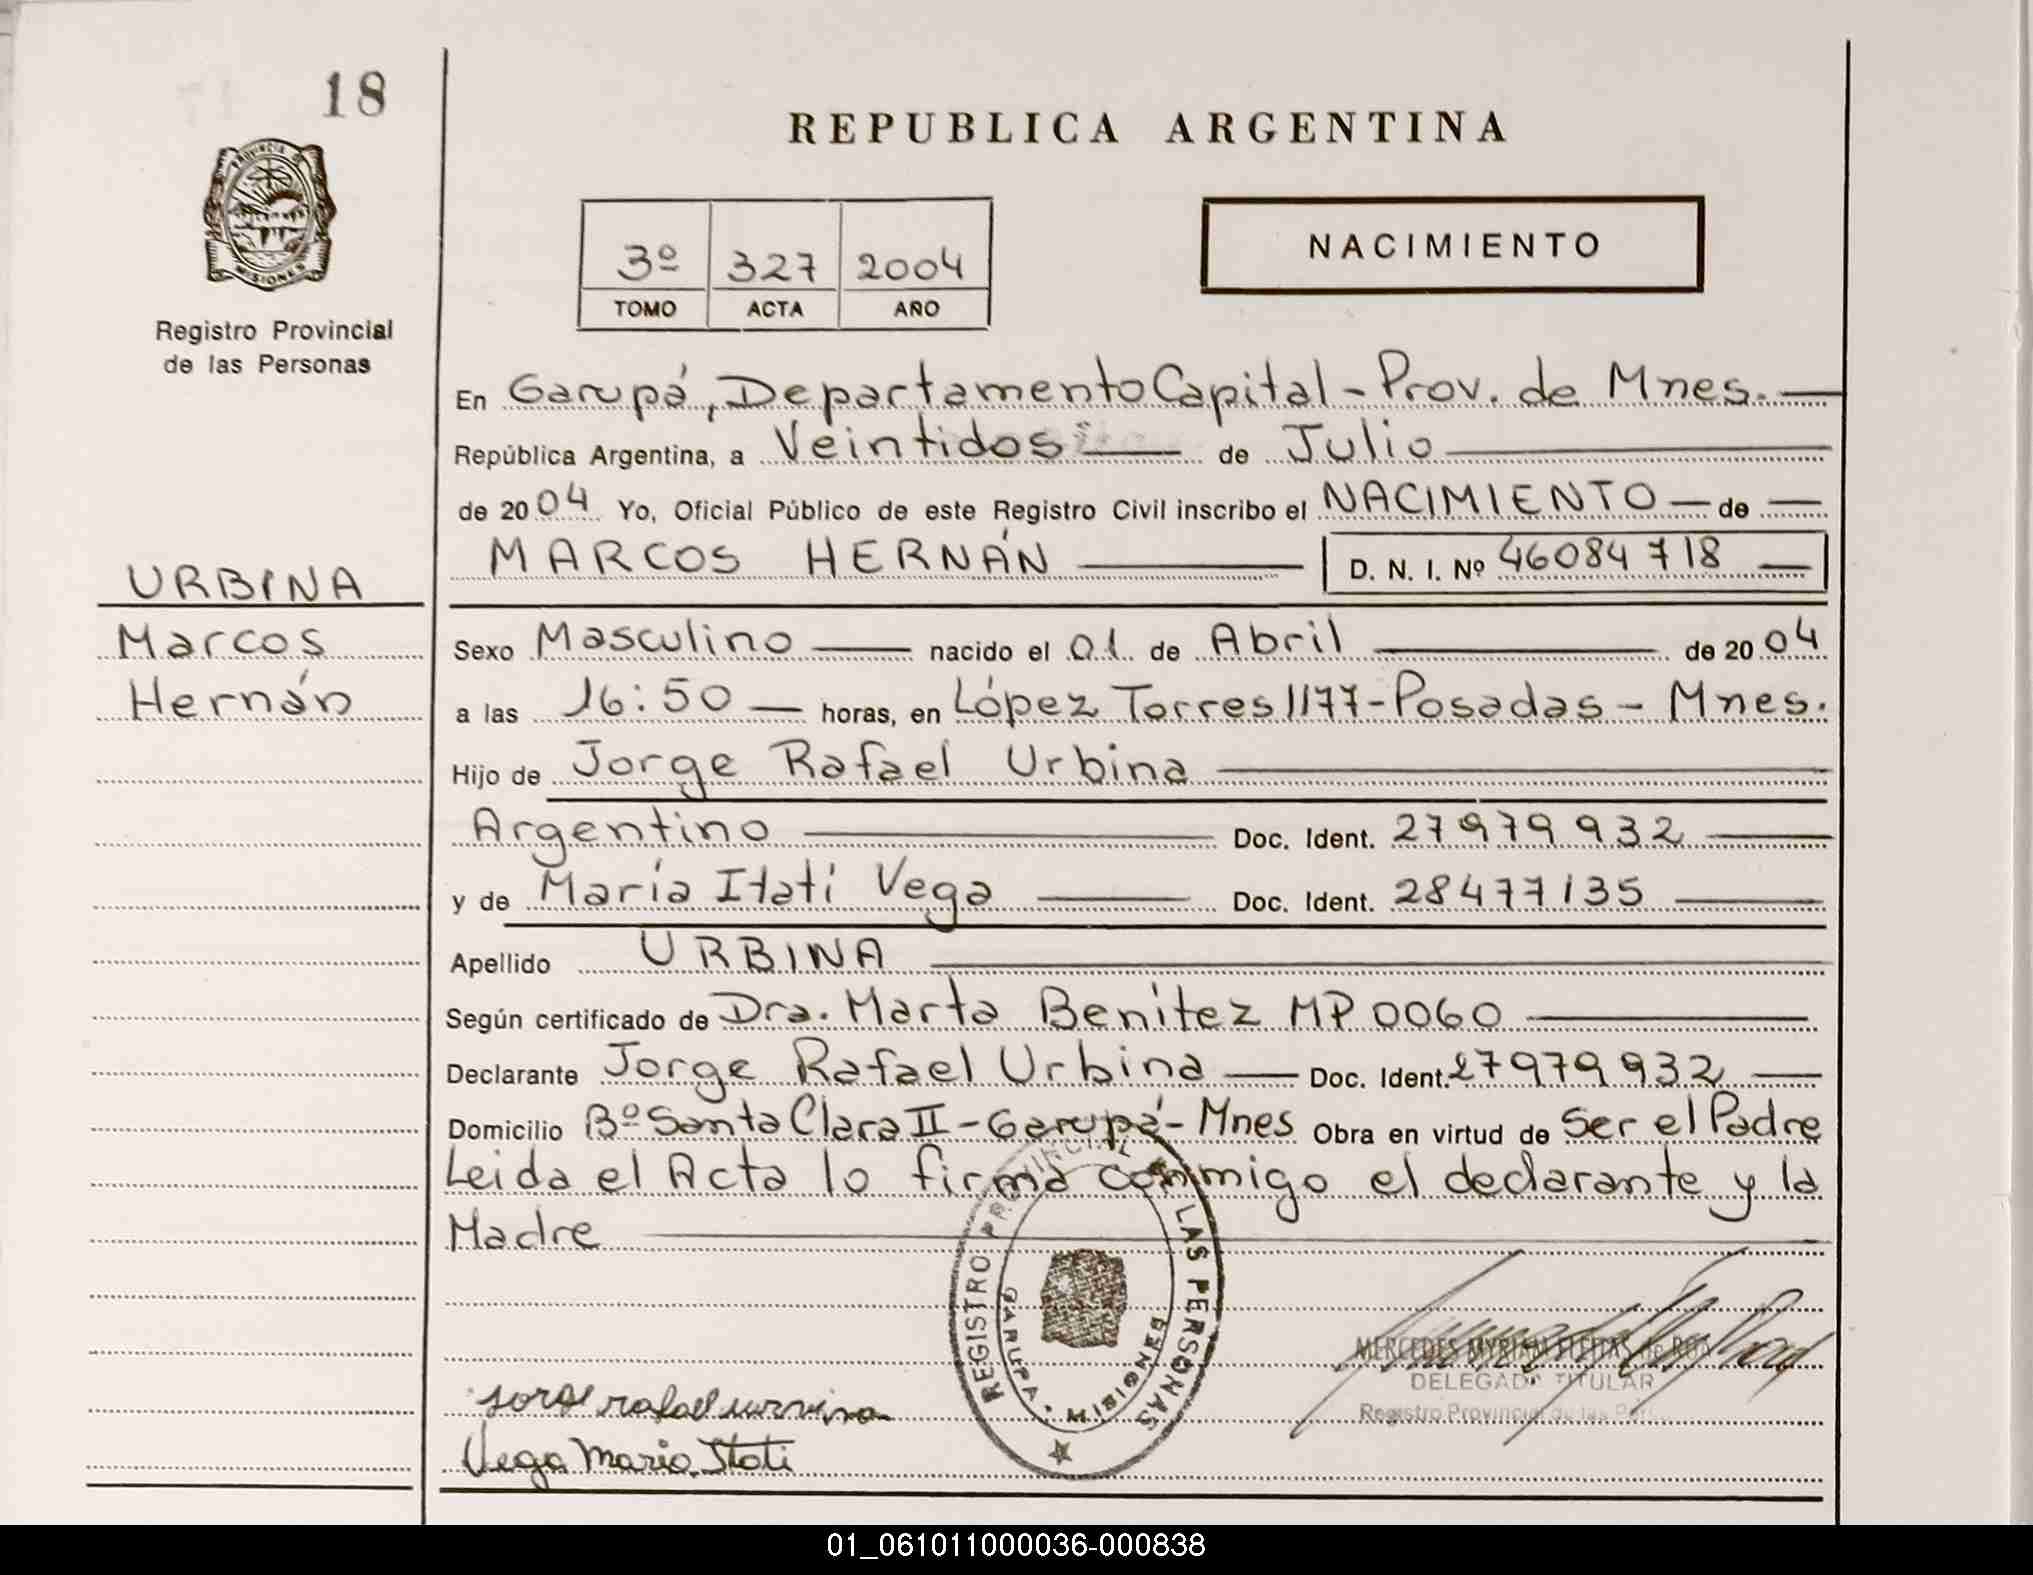 18
REPUBLICA ARGENTINA
PROVINCIA DE
MISIONES
Registro Provincial
de las Personas
3º 327 2004
TOMO ACTA AÑO
NACIMIENTO
En Garupá, Departamento Capital - Prov. de Mnes.
República Argentina, a Veintidos de Julio
de 2004 Yo, Oficial Público de este Registro Civil inscribo el NACIMIENTO de
MARCOS HERNÁN D. N. I. Nº 46084718
URBINA
Marcos
Hernán
Sexo Masculino nacido el 01 de Abril de 2004
a las 16:50 horas, en López Torres 1177 - Posadas - Mnes.
Hijo de Jorge Rafael Urbina
Argentino Doc. Ident. 27979932
y de María Itatí Vega Doc. Ident. 28477135
Apellido URBINA
Según certificado de Dra. Marta Benítez MP 0060
Declarante Jorge Rafael Urbina Doc. Ident. 27979932
Domicilio Bº Santa Clara II - Garupá - Mnes Obra en virtud de Ser el Padre
Leida el Acta lo firma conmigo el declarante y la
Madre
REGISTRO PROVINCIAL DE LAS PERSONAS
GARUPA · MISIONES
MERCEDES MYRIAM FLEITAS de
DELEGADO TITULAR
Registro Provincial de las
jorge rafael urvina
Vega Maria Itati
01_061011000036-000838